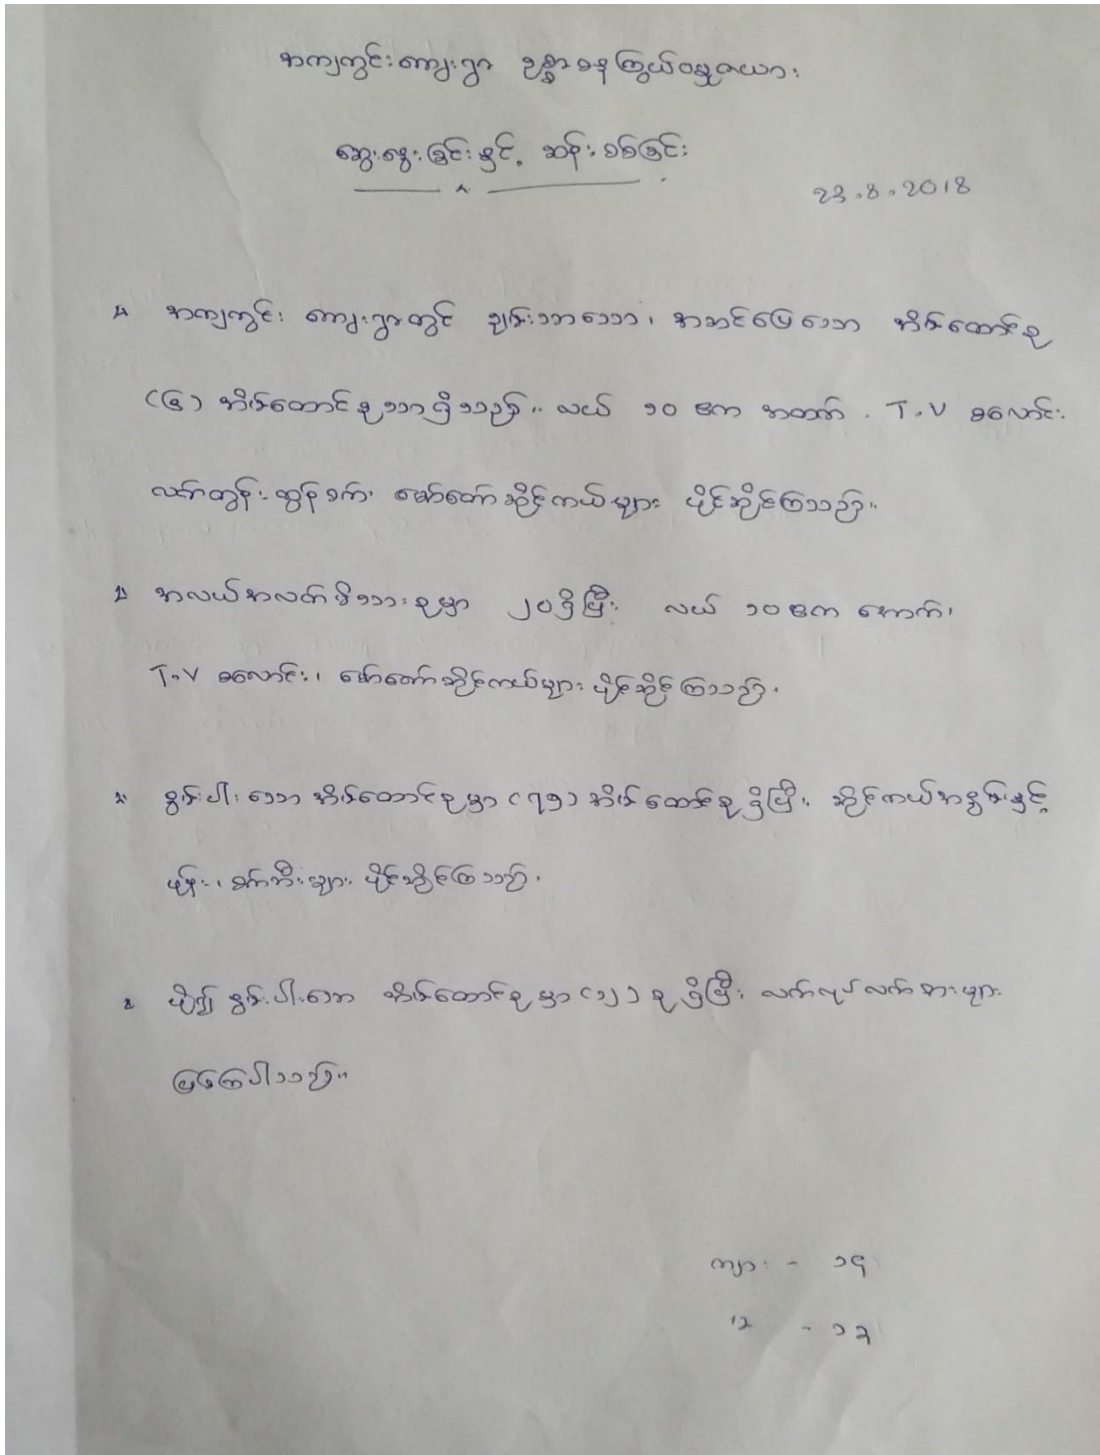 အကျကွင်းကျေးရွာ ဥစ္စာဓနကြွယ်ဝမှုဇယား
ဆွေးနွေးခြင်းနှင့် ဆန်းစစ်ခြင်း
23.8.2018
၁။ အကျကွင်း ကျေးရွာတွင် ချမ်းသာသော၊ အဆင်ပြေသော အိမ်ထောင်စု
(၆) အိမ်ထောင်စုသာရှိသည်။ လယ် ၁၀ ဧက အထက် . T.V စလောင်း
လက်တွန်းထွန်စက်၊ မော်တော်ဆိုင်ကယ်များ ပိုင်ဆိုင်ကြသည်။
၂။ အလယ်အလတ်မိသားစုမှာ ၂၀ရှိပြီး လယ် ၁၀ဧက အောက်၊
T.V စလောင်း၊ မော်တော်ဆိုင်ကယ်များ ပိုင်ဆိုင်ကြသည်။
၃။ နွမ်းပါးသောအိမ်ထောင်စုမှာ (၇၅) အိမ်ထောင်စုရှိပြီး ဆိုင်ကယ်အစွမ်းနှင့်
ဖုန်း၊ စက်ဘီးများ ပိုင်ဆိုင်ကြသည်။
၄။ ပို၍ နွမ်းပါးသော အိမ်ထောင်စုမှာ (၁၂) စုရှိပြီး လက်လုပ်လက်စားများ
ဖြစ်ကြပါသည်။
ကျား - ၁၄
မ - ၁၃